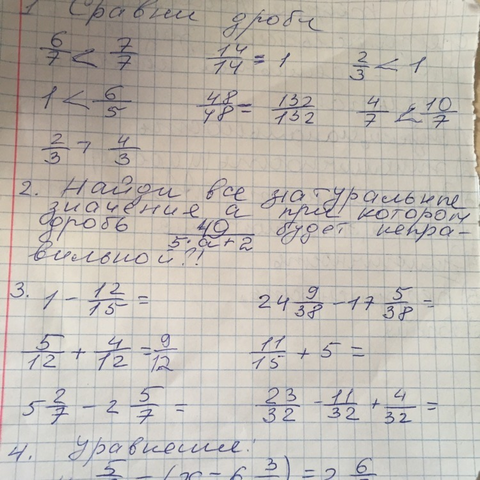 1 Сравни дроби
6/7 < 7/7 14/14 = 1 2/3 < 1
1 < 6/5 48/48 = 132/132 4/7 < 10/7
2/3 > 4/3
2. Найди все натуральные
значения а при котором
дробь 40/(5·а+2) будет непра-
вильной?!
3. 1 - 12/15 = 24 9/38 - 17 5/38 =
5/12 + 4/12 = 9/12 11/15 + 5 =
5 2/7 - 2 5/7 = 23/32 - 11/32 + 4/32 =
4. Уравнения: